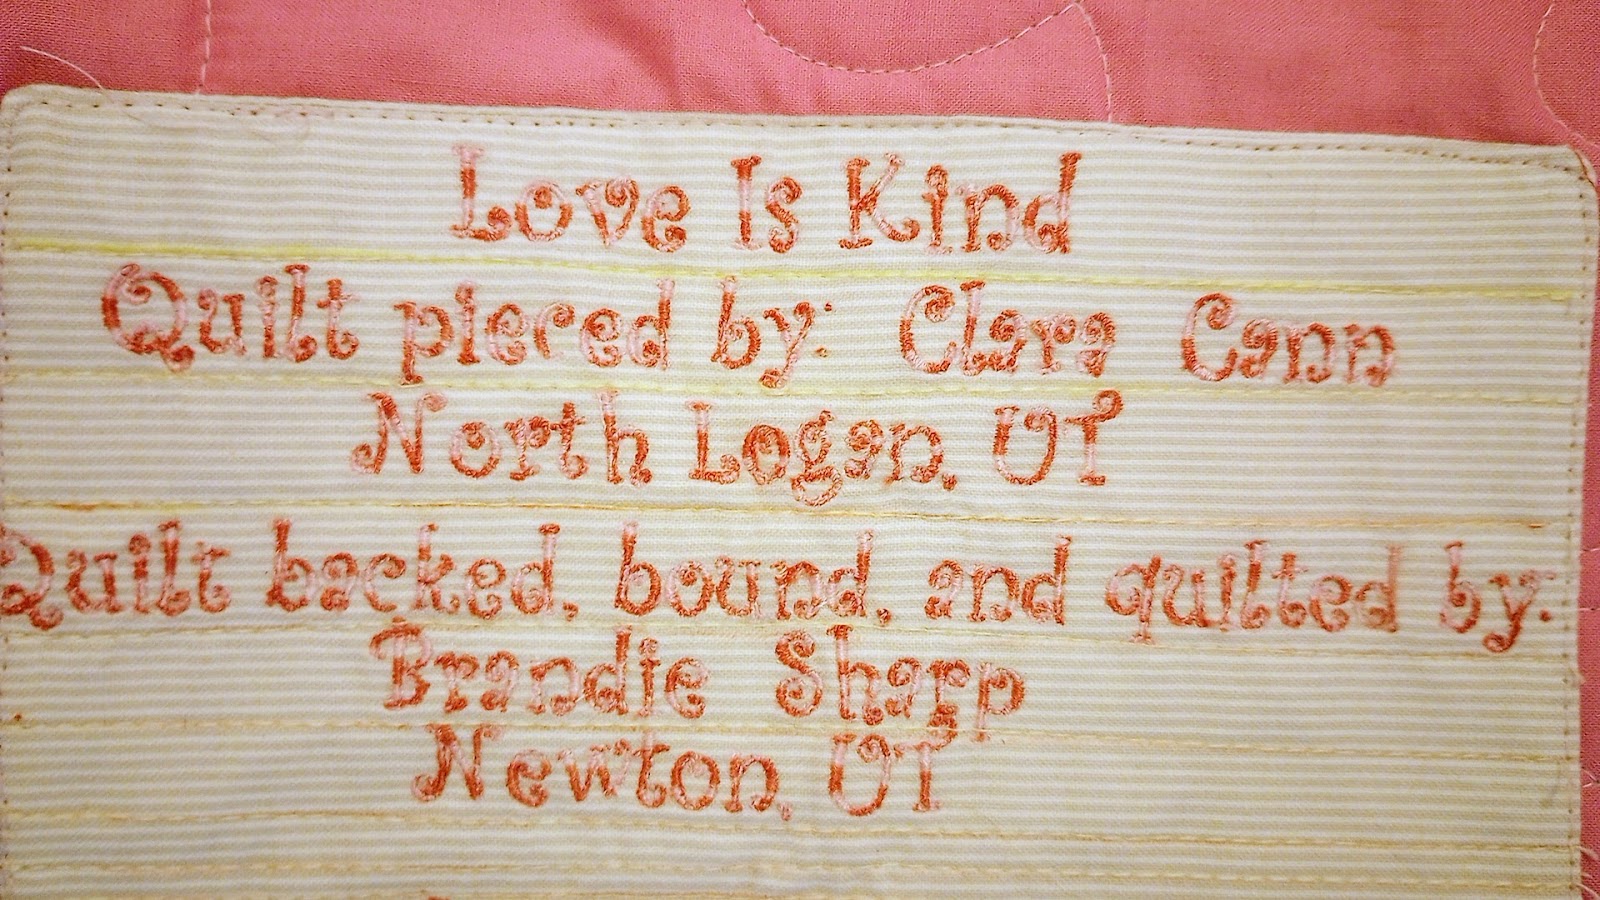 Love Is Kind
Quilt pieced by: Clara Cann
North Logan, UT
Quilt backed, bound, and quilted by:
Brandie Sharp
Newton, UT